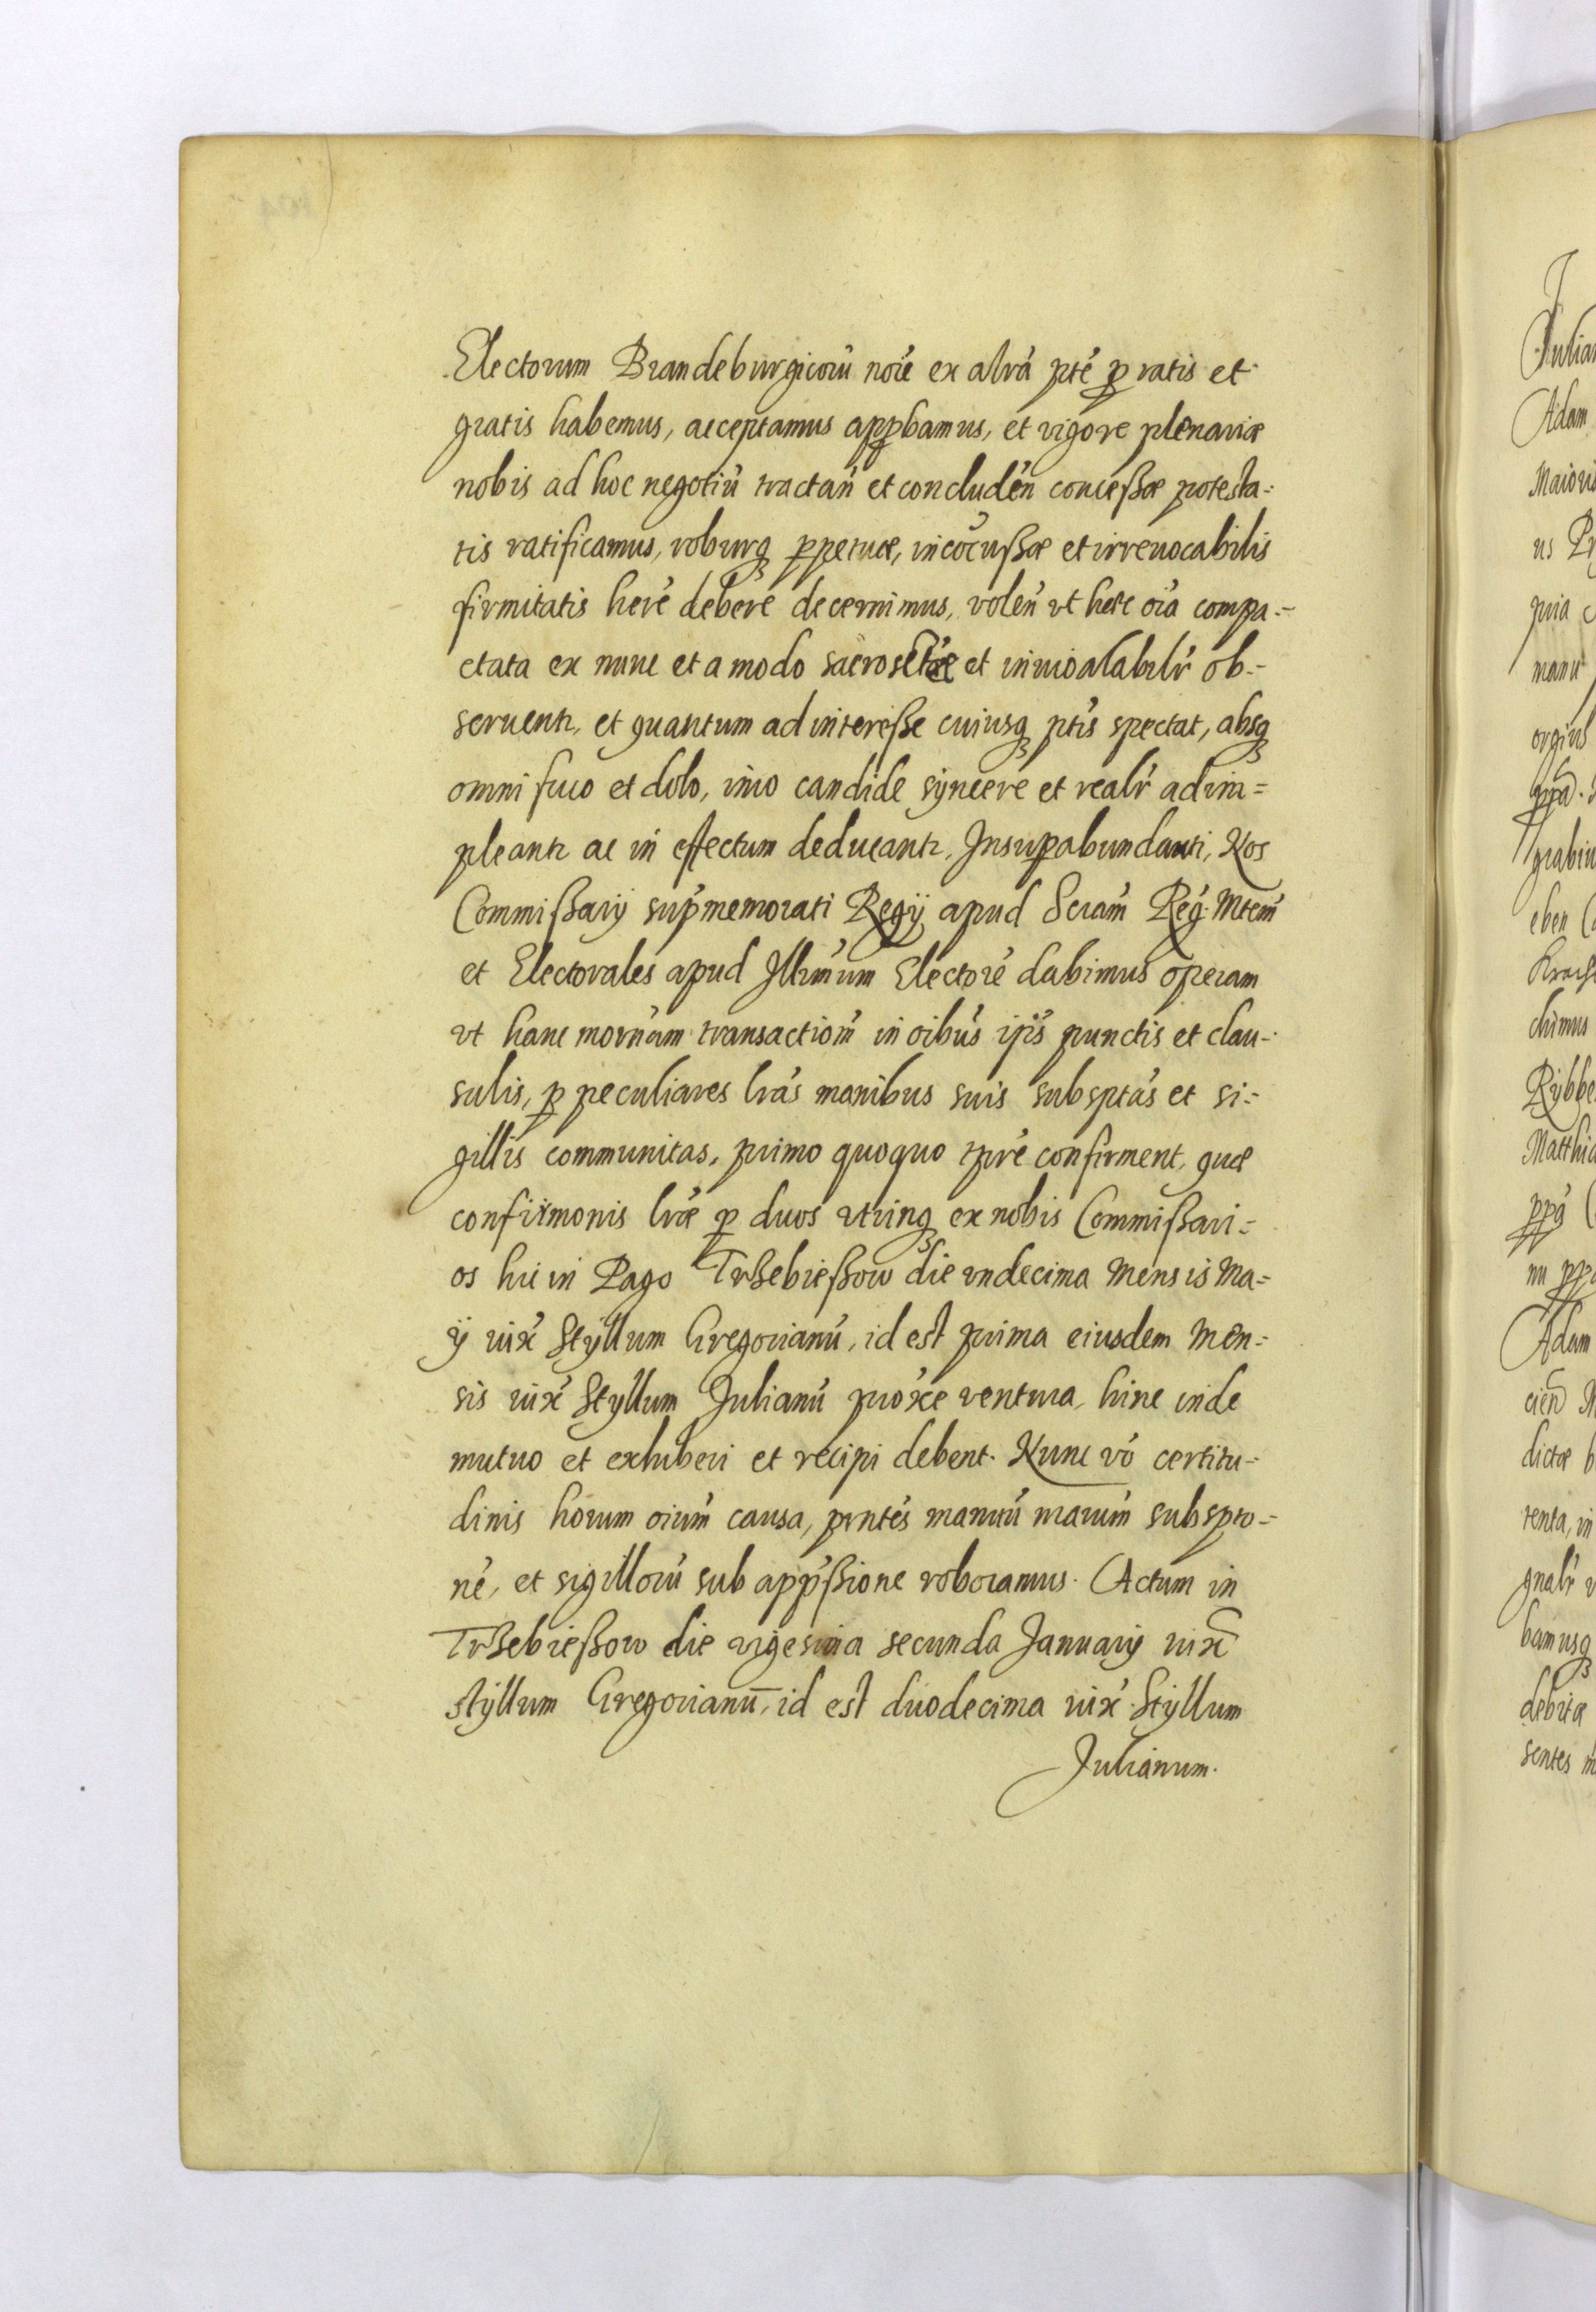 Electorum Brandeburgicorū noīe ex altrá pté ꝓ ratis et
gratis habemus, acceptamus apꝓbamus, et vigore plenariæ
nobis ad hoc negotiū tractań et concludén conceßæ potesta-
tis ratificamus, roburqꝫ ꝑpetuæ, incōcußæ et irreuocabilis
firmitatis heré debere decernimus, volén vt hæc oīa compa-
ctata ex nunc et a modo sacrosctæ et inuiolabilr ob-
seruentr, et quantum ad intereße cuiusqꝫ ptis spectat, absqꝫ
omni fuco et dolo, imo candide syncere et realr adim-
pleantr ac in effectum deducantr, Insuꝑabundanti, Nos
Commißarij supmemorati Regij apud Scram Reg: Mtem
et Electorales apud Illmum Electoré dabimus operam
vt hanc mornam transactiom in oibus ipis punctis et clau-
sulis, ꝑ peculiares lrás manibus suis subsptás et si-
gillis communitas, primo quoquo tpré confirment, quæ
confirmonis lræ ꝑ duos vtrinqꝫ ex nobis Commißari-
os hic in Pago Trßebießow die vndecima Mensis Ma-
ij iux Styllum Gregorianū, id est prima eiusdem Men-
sis iux Styllum Julianū proxe ventura, hinc inde
mutuo et exhiberi et recipi debent. Nunc vó certitu-
dinis horum oium causa, prntes manuū nrarum subspto-
né, et sigillorū sub appßione roboramus. Actum in
Trßebießow die vigesima secunda Januarij iux
styllum Gregorianū, id est duodecima iux Styllum
Julianum.